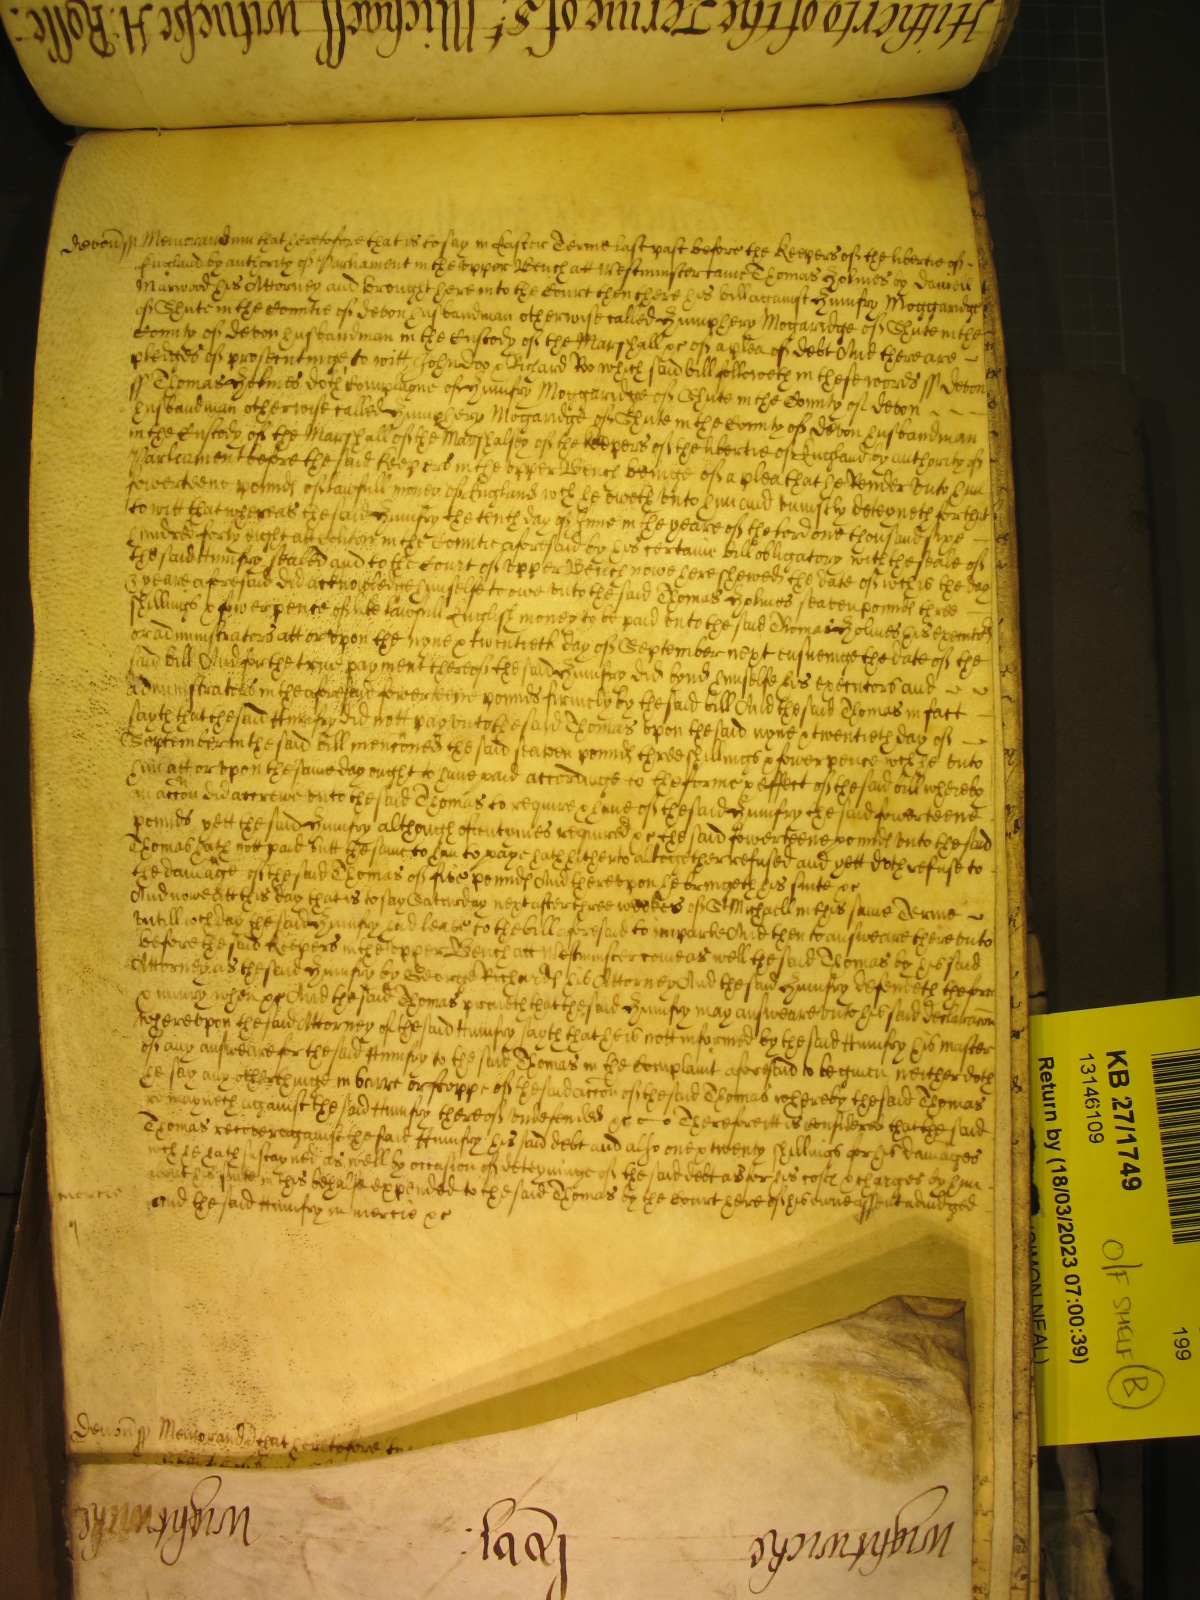 Hitherto of the Terme of St Michaell witnesse H: Rolle:
Devon ss Memorandum that heretofore that is to say in Easter Terme last past before the Keepers of the libertie of
England by authority of Parliament in the upper Bench att Westminster came Thomas Holmes by Daniell
Marwood his Attorney and brought here into the Court then there his bill against Humfry Moggaridge
of Shute in the Countie of Devon husbandman otherwise called Humphery Mogaridge of Shute in the
County of Devon husbandman in the Custody of the Marshall &c of a plea of debt And there are
pledges of prosecutinge to witt John Doo & Richard Roo which said bill followeth in these words ss Devon
ss Thomas Holmes doth complayne of Humfry Moggaridge of Shute in the County of Devon
husbandman otherwise called Humphery Mogaridge of Shute in the County of Devon husbandman
in the Custody of the Marshall of the Marshalsey of the Keepers of the libertie of England by authority of
Parliament before the said Keepers in the upper Bench beinge of a plea that he Render unto him
fowerteene pounds of lawfull money of England wch he oweth unto him and uniustly deteyneth for that
to witt that whereas the said Humfry the tenth day of June in the yeare of the lord one thousand sixe
hundred forty eight att in the Countie aforesaid by his certaine bill obligatory with the seale of
the said Humfry sealed and to the Court of upper Bench nowe here shewed the date of wch is the day
& yeare aforesaid did acknowledge himselfe to owe unto the said Thomas Holmes seaven pounds three
shillings & fower pence of like lawfull English money to be paid unto the said Thomas Holmes his executors
or administrators att or upon the nyne & twentieth day of September next ensueinge the date of the
said bill And for the true payment thereof the said Humfry did bynd himselfe his executors and
administrators in the aforesaid fowerteene pounds firmely by the said bill And the said Thomas in fact
sayth that the said Humfry did nott pay unto the said Thomas upon the said nyne & twentieth day of
September in the said bill menconed the said seaven pounds three shillings & fower pence wch he unto
him att or upon the same day ought to have paid accordinge to the forme & effect of the said bill whereby
an accon did accrewe unto the said Thomas to require & have of the said Humfry the said fowerteene
pounds yett the said Humfry although oftentimes required &c the said fowerteene pounds unto the said
Thomas hath nott paid butt the same to him to paye hath hitherto altogether refused and yett doth refuse to
the damage of the said Thomas of five pounds And thereupon he bringeth his suite &c
And nowe att this day that is to say Saturday next after three weekes of St Michaell in this same Terme
untill wch day the said Humfry had leave to the bill aforesaid to imparle And then to answeare there unto
before the said Keepers in the upper Bench att Westminster came as well the said Thomas by his said
Attorney as the said Humfry by George Richards his Attorney And the said Humfry defendeth the force
& iniury when &c And the said Thomas prayeth that the said Humfry may answeare unto his said declaracon
whereupon the said Attorney of the said Humfry sayth that he is nott informed by the said Humfry his master
of any answeare for the said Humfry to the said Thomas in the complaint aforesaid to be given neither doth
he say any other thinge in barre or stoppe of the said accon of the said Thomas whereby the said Thomas
remayneth against the said Humfry thereof undefended &c Therefore itt is considered that the said
Thomas recover against the said Humfry his said debt and also one & twenty shillings for his damages
wch he hath susteyned as well by occasion of deteyninge of the said debt as for his costs & charges by him
about his suite in this behalfe expended to the said Thomas by the Court here of his owne assent adiudged
mercie And the said Humfry in mercie &c
Devon ss Memorand that heretofore
Wightwicke
Wightwicke
KB 27/1749
13146109
Return by (18/03/2023 07:00:39)
(SIMON NEAL)
O/F SHELF B
199